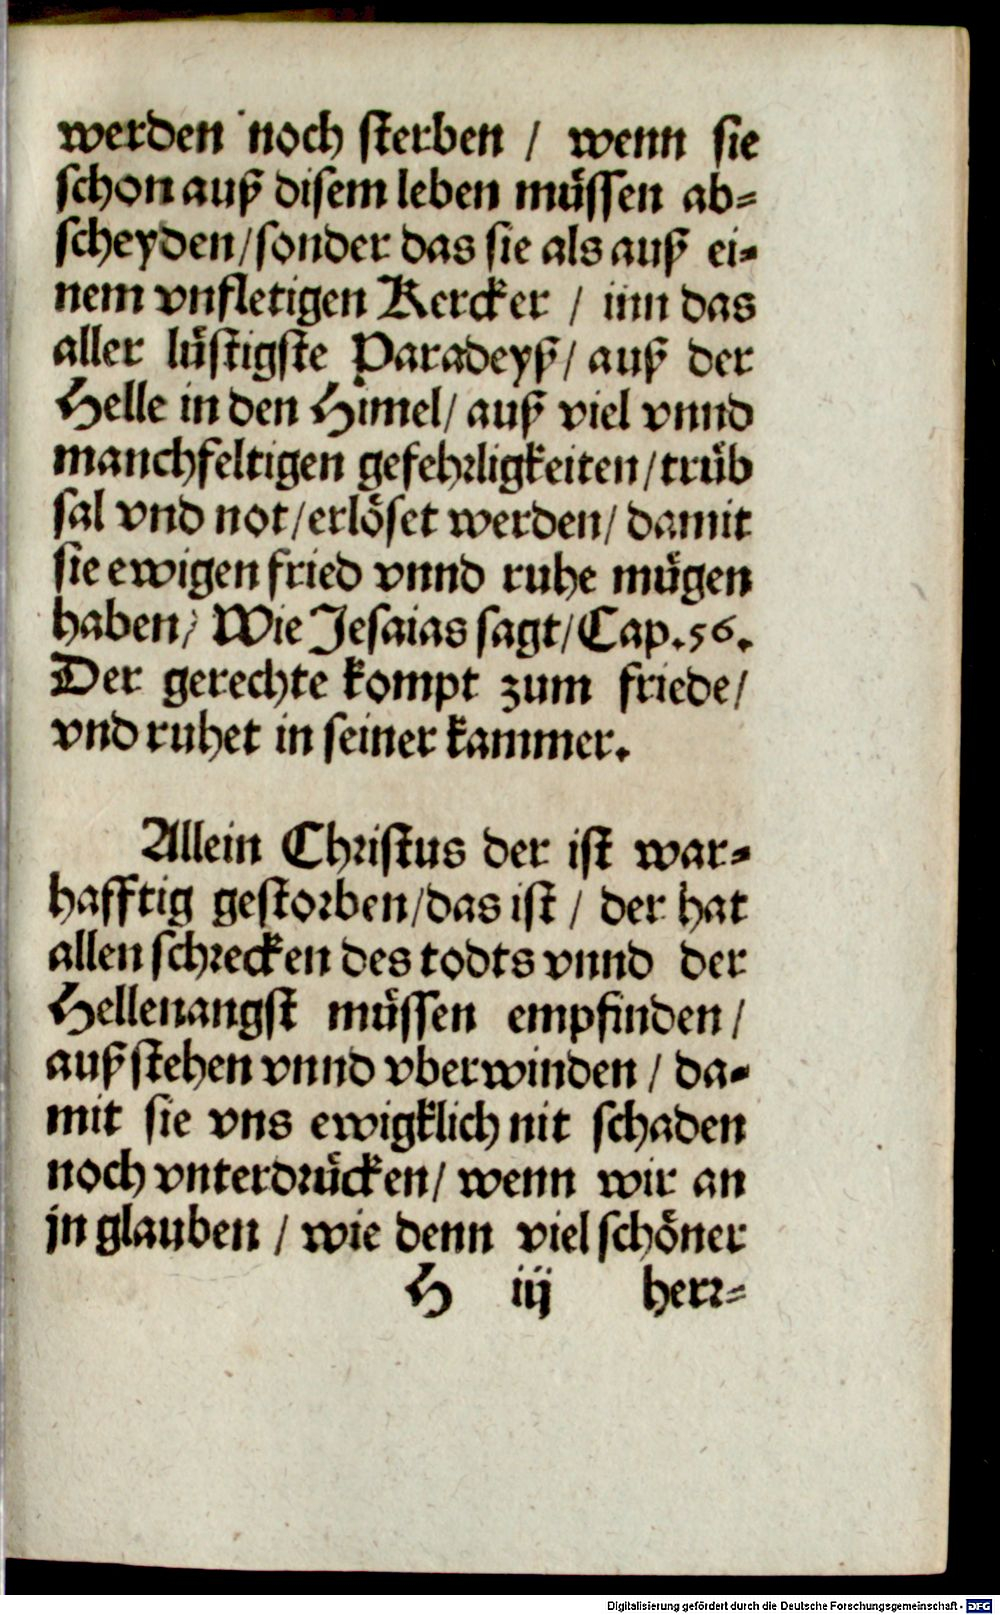 werden noch sterben / wenn sie
schon auß disem leben müssen ab=
scheyden/sonder das sie als auß ei=
nem vnfletigen Kercker / inn das
aller lüstigste Paradeyß/ auß der
Helle in den Himel/ auß viel vnnd
manchfeltigen gefehrligkeiten/trüb
sal vnd not/erlöset werden/ damit
sie ewigen fried vnnd ruhe mügen
haben/ Wie Jesaias sagt/Cap.56.
Der gerechte kompt zum friede/
vnd ruhet in seiner kammer.
Allein Christus der ist war=
hafftig gestorben/das ist / der hat
allen schrecken des todts vnnd der
Hellenangst müssen empfinden/
außstehen vnnd vberwinden / da=
mit sie vns ewigklich nit schaden
noch vnterdrücken/ wenn wir an
jn glauben / wie denn viel schöner
H iij herr=
Digitalisierung gefördert durch die Deutsche Forschungsgemeinschaft - DFG